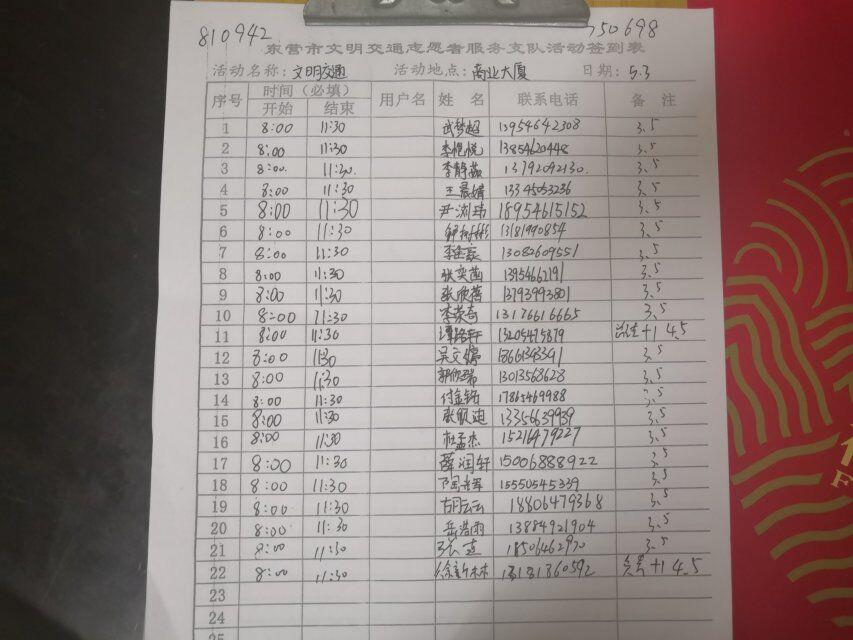 810942
750698
东营市文明交通志愿者服务支队活动签到表
活动名称：文明交通 活动地点：商业大厦 日期：5.3
序号 时间（必填） 用户名 姓 名 联系电话 备 注
开始 结束
1 8:00 11:30 武梦超 13954642308 3.5
2 8:00 11:30 李悦悦 13854620448 3.5
3 8:00 11:30. 李静茹 13792092130. 3.5
4 8:00 11:30 王晨婧 13345053236 3.5
5 8:00 11:30 尹浏玮 18954615152 3.5
6 8:00 11:30 13181990854 3.5
7 8:00 11:30 李金豪 13082609551 3.5
8 8:00 11:30 张奕菡 13954662191 3.5
9 8:00 11:30 张欣蓓 13793993801 3.5
10 8:00 11:30 李荣奇 13176616665 3.5
11 8:00 11:30 13205475879 +1 4.5
12 8:00 11:30 吴文婷 18661343341 3.5
13 8:00 11:30 郭欣瑞 13013568628 3.5
14 8:00 11:30 付金铭 17865469988 3.5
15 8:00 11:30 张顺迪 13356639939 3.5
16 8:00 11:30 杜孟杰 15216479227 3.5
17 8:00 11:30 薛润轩 15006888922 3.5
18 8:00 11:30 陶兴军 15550545339 3.5
19 8:00 11:30 胡云云 18806479368 3.5
20 8:00 11:30 岳浩雨 13884921904 3.5
21 8:00 11:30 张 18506462970 3.5
22 8:00 11:30 徐新林 13181860592 负责+1 4.5
23
24
25